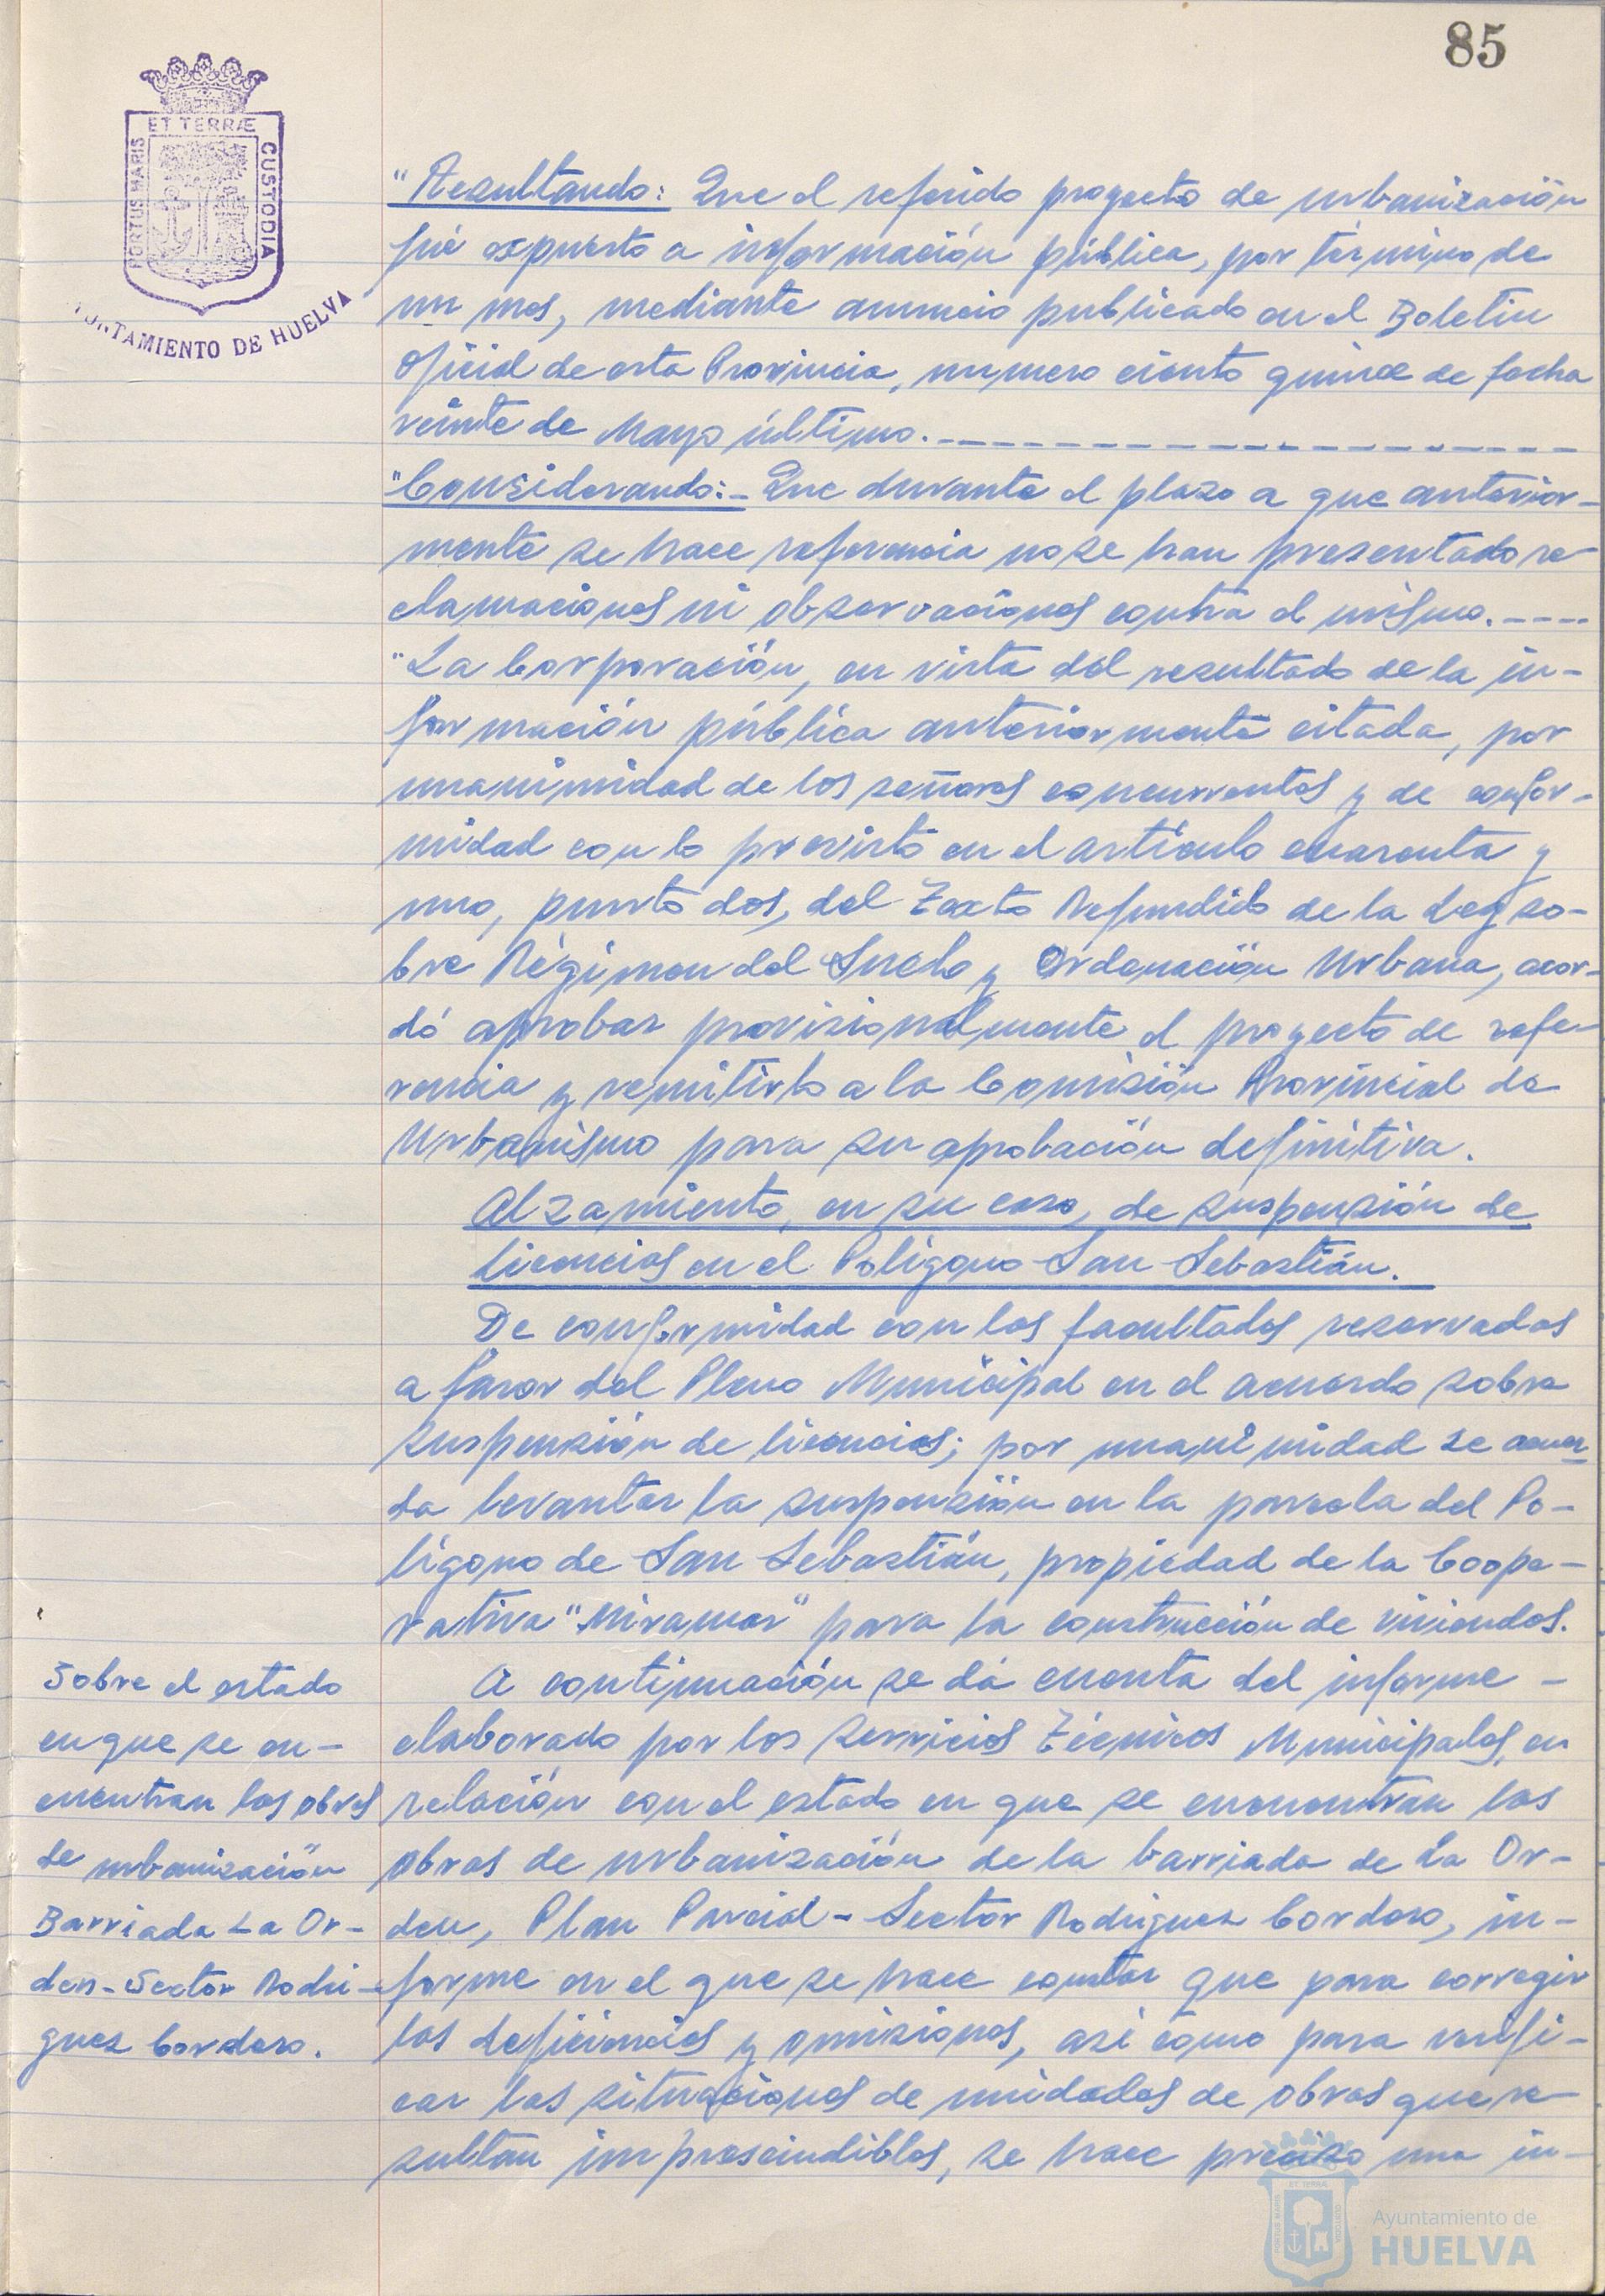 85
ET TERRÆ
PORTUS MARIS
CUSTODIA
AYUNTAMIENTO DE HUELVA
"Resultando: Que el referido proyecto de urbanización
fué expuesto a información pública, por término de
un mes, mediante anuncio publicado en el Boletin
Oficial de esta Provincia, número ciento quince de fecha
veinte de Mayo último.
"Considerando:- Que durante el plazo a que anterior-
mente se hace referencia no se han presentado re-
clamaciones ni observaciones contra el mismo.
"La Corporación, en vista del resultado de la in-
formación pública anteriormente citada, por
unanimidad de los señores concurrentes y de confor-
midad con lo previsto en el artículo cuarenta y
uno, punto dos, del Texto Refundido de la Ley so-
bre Régimen del Suelo y Ordenación Urbana, acor-
dó aprobar provisionalmente el proyecto de refe-
rencia y remitirlo a la Comisión Provincial de
Urbanismo para su aprobación definitiva.
Alzamiento, en su caso, de suspensión de
licencias en el Polígono San Sebastián.
De conformidad con las facultades reservadas
a favor del Pleno Municipal en el acuerdo sobre
suspensión de licencias; por unanimidad se acuer-
da levantar la suspensión en la parcela del Po-
lígono de San Sebastián, propiedad de la Coope-
rativa "Miramar" para la construcción de viviendas.
Sobre el estado
en que se en-
cuentran las obras
de urbanización
Barriada La Or-
den - Sector Rodrí-
guez Cordero.
A continuación se dá cuenta del informe -
elaborado por los Servicios Técnicos Municipales, en
relación con el estado en que se encuentran las
obras de urbanización de la barriada de La Or-
den, Plan Parcial - Sector Rodriguez Cordero, in-
forme en el que se hace constar que para corregir
las deficiencias y omisiones, asi como para verifi-
car las situaciones de unidades de obras que re-
sultan imprescindibles, se hace preciso una in-
Ayuntamiento de
HUELVA